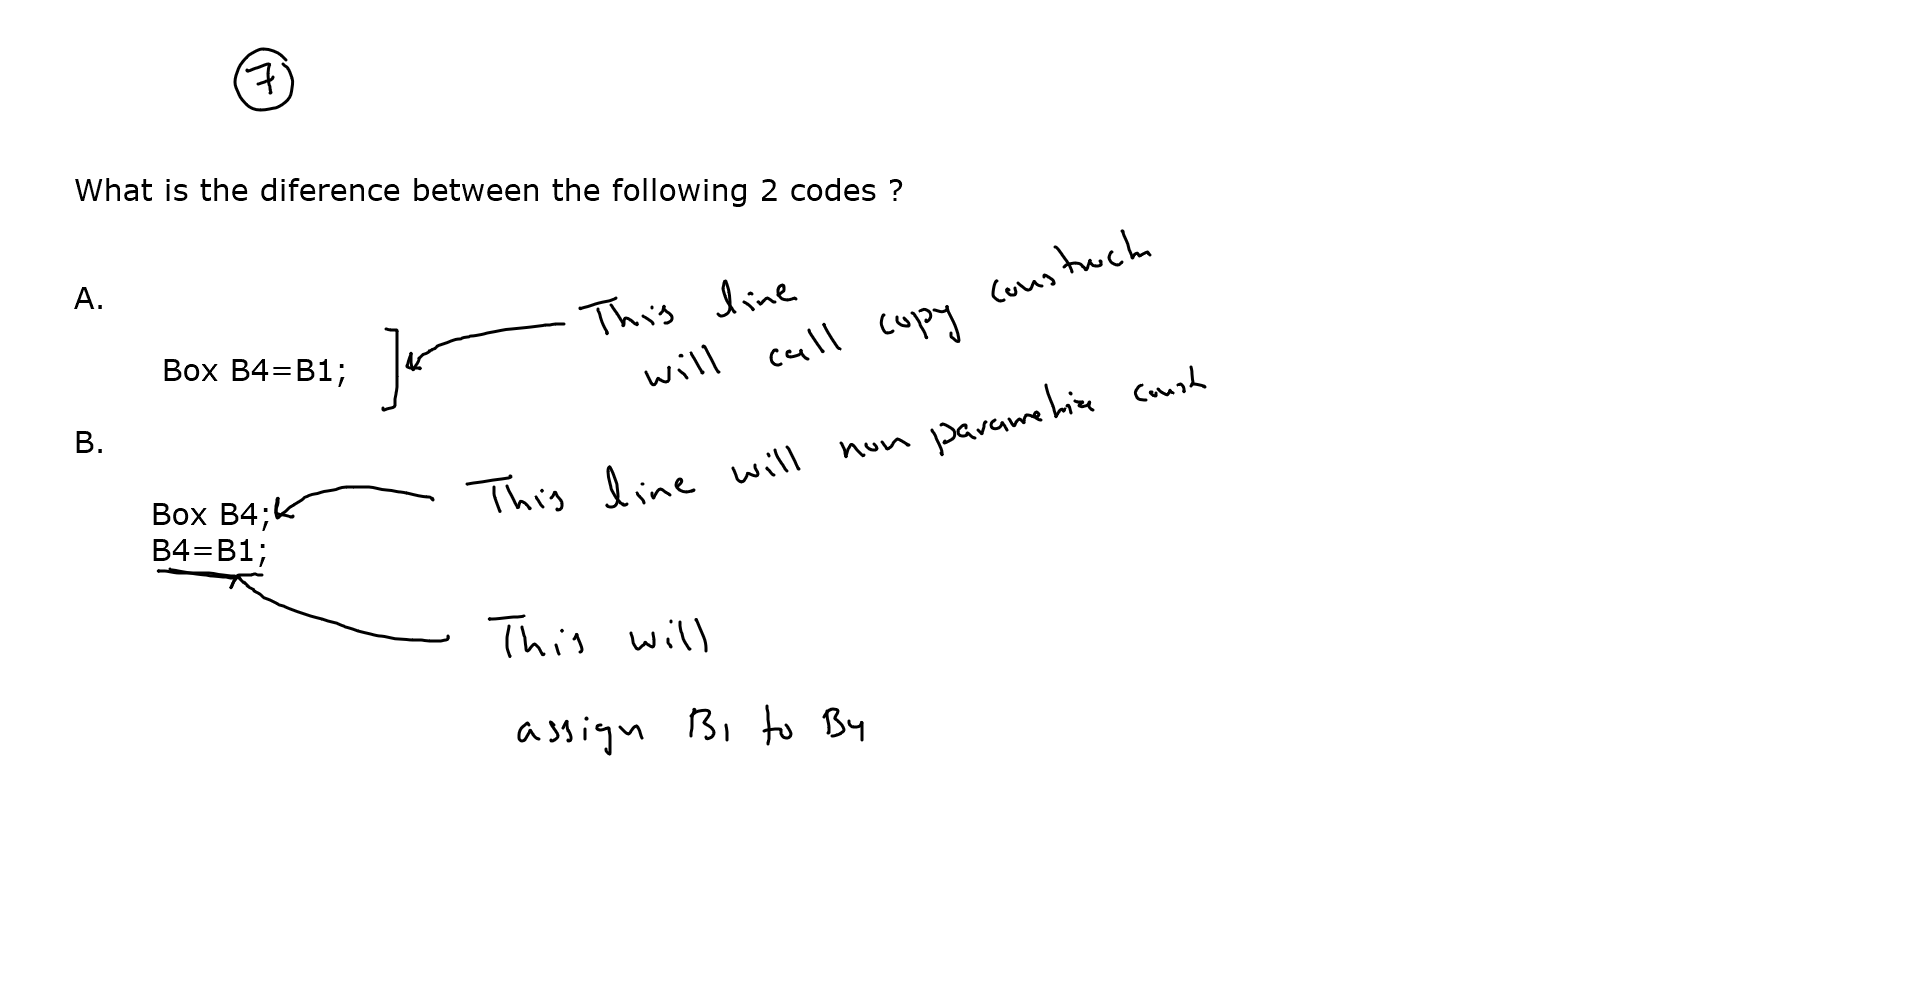 7
What is the diference between the following 2 codes ?
A.
This line
will call copy constructn
Box B4=B1;
B.
This line will non parametrize const
Box B4;
B4=B1;
This will
assign B1 to B4